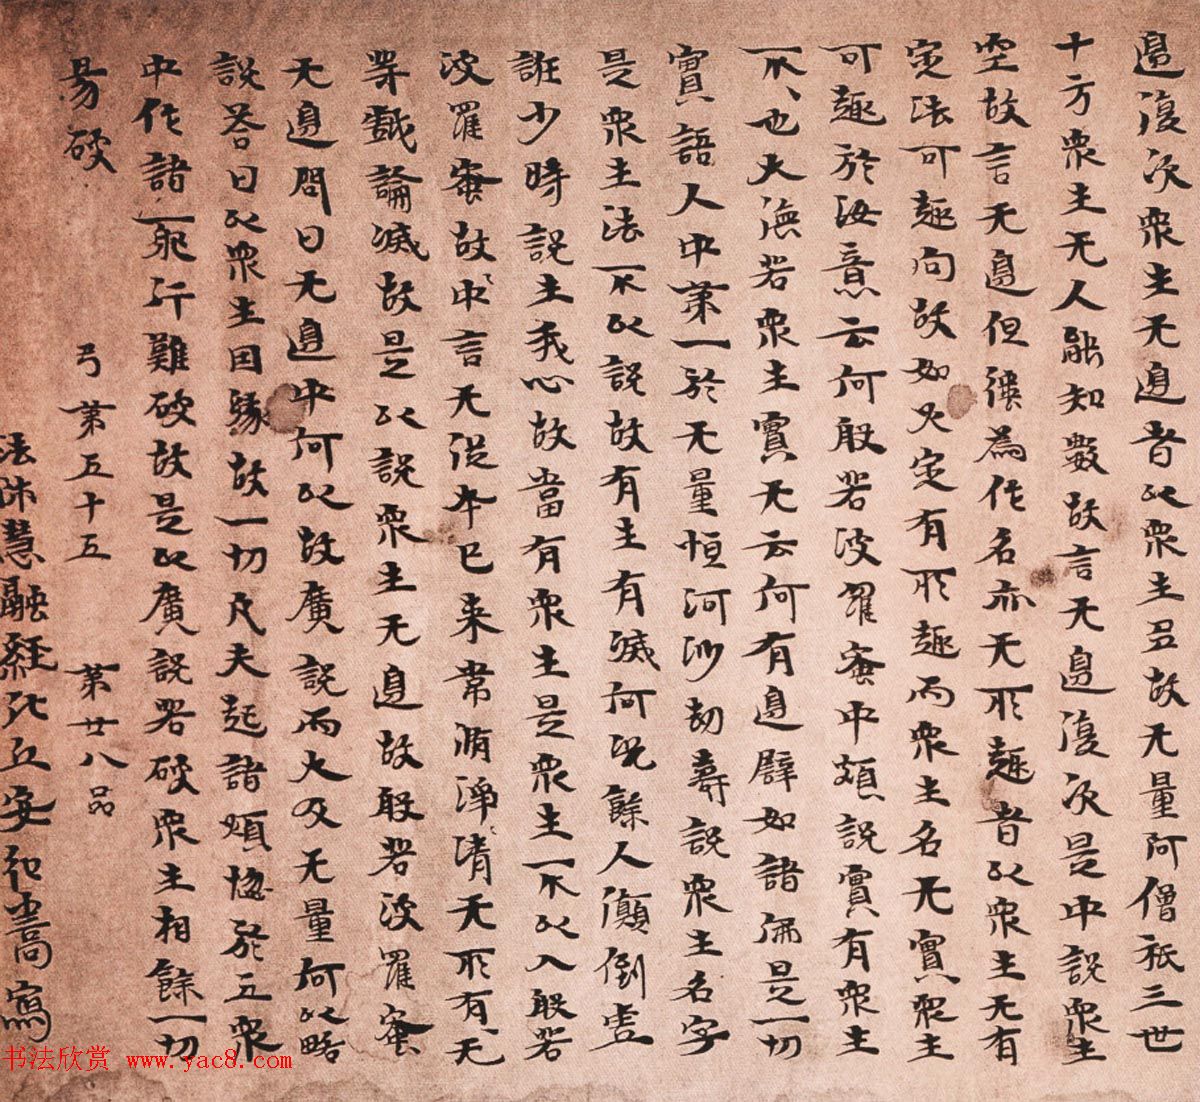 邊復次眾生无邊者以眾生多故无量阿僧祇三世
十方眾生无人能知數故言无邊復次是中說眾生
空故言无邊但強為作名亦无所趣者以眾生无有
定法可趣向故如火定有所趣而眾生名无實眾生
可趣於汝意云何般若波羅蜜中頗說實有眾生
不不也大德若眾生實无云何有邊譬如諸佛是一切
實語人中第一於无量恒河沙劫壽說眾生名字
是眾生法不以說故有生有滅何況餘人顛倒虛
誑少時說生我心故當有眾生是眾生不以入般若
波羅蜜故中言无從本已来常清淨清无所有无
等戲論滅故是以說眾生无邊故般若波羅蜜
无邊問曰无邊中何以故廣說而大及无量何以略
說答曰以眾生因緣故一切凡夫起諸煩惱於五眾
中作諸耶行難破故是以廣說若破眾生相餘一切
易破
弓第五十五 第廿八品
法師慧融經比丘安弘嵩寫
书法欣赏 www.yac8.com